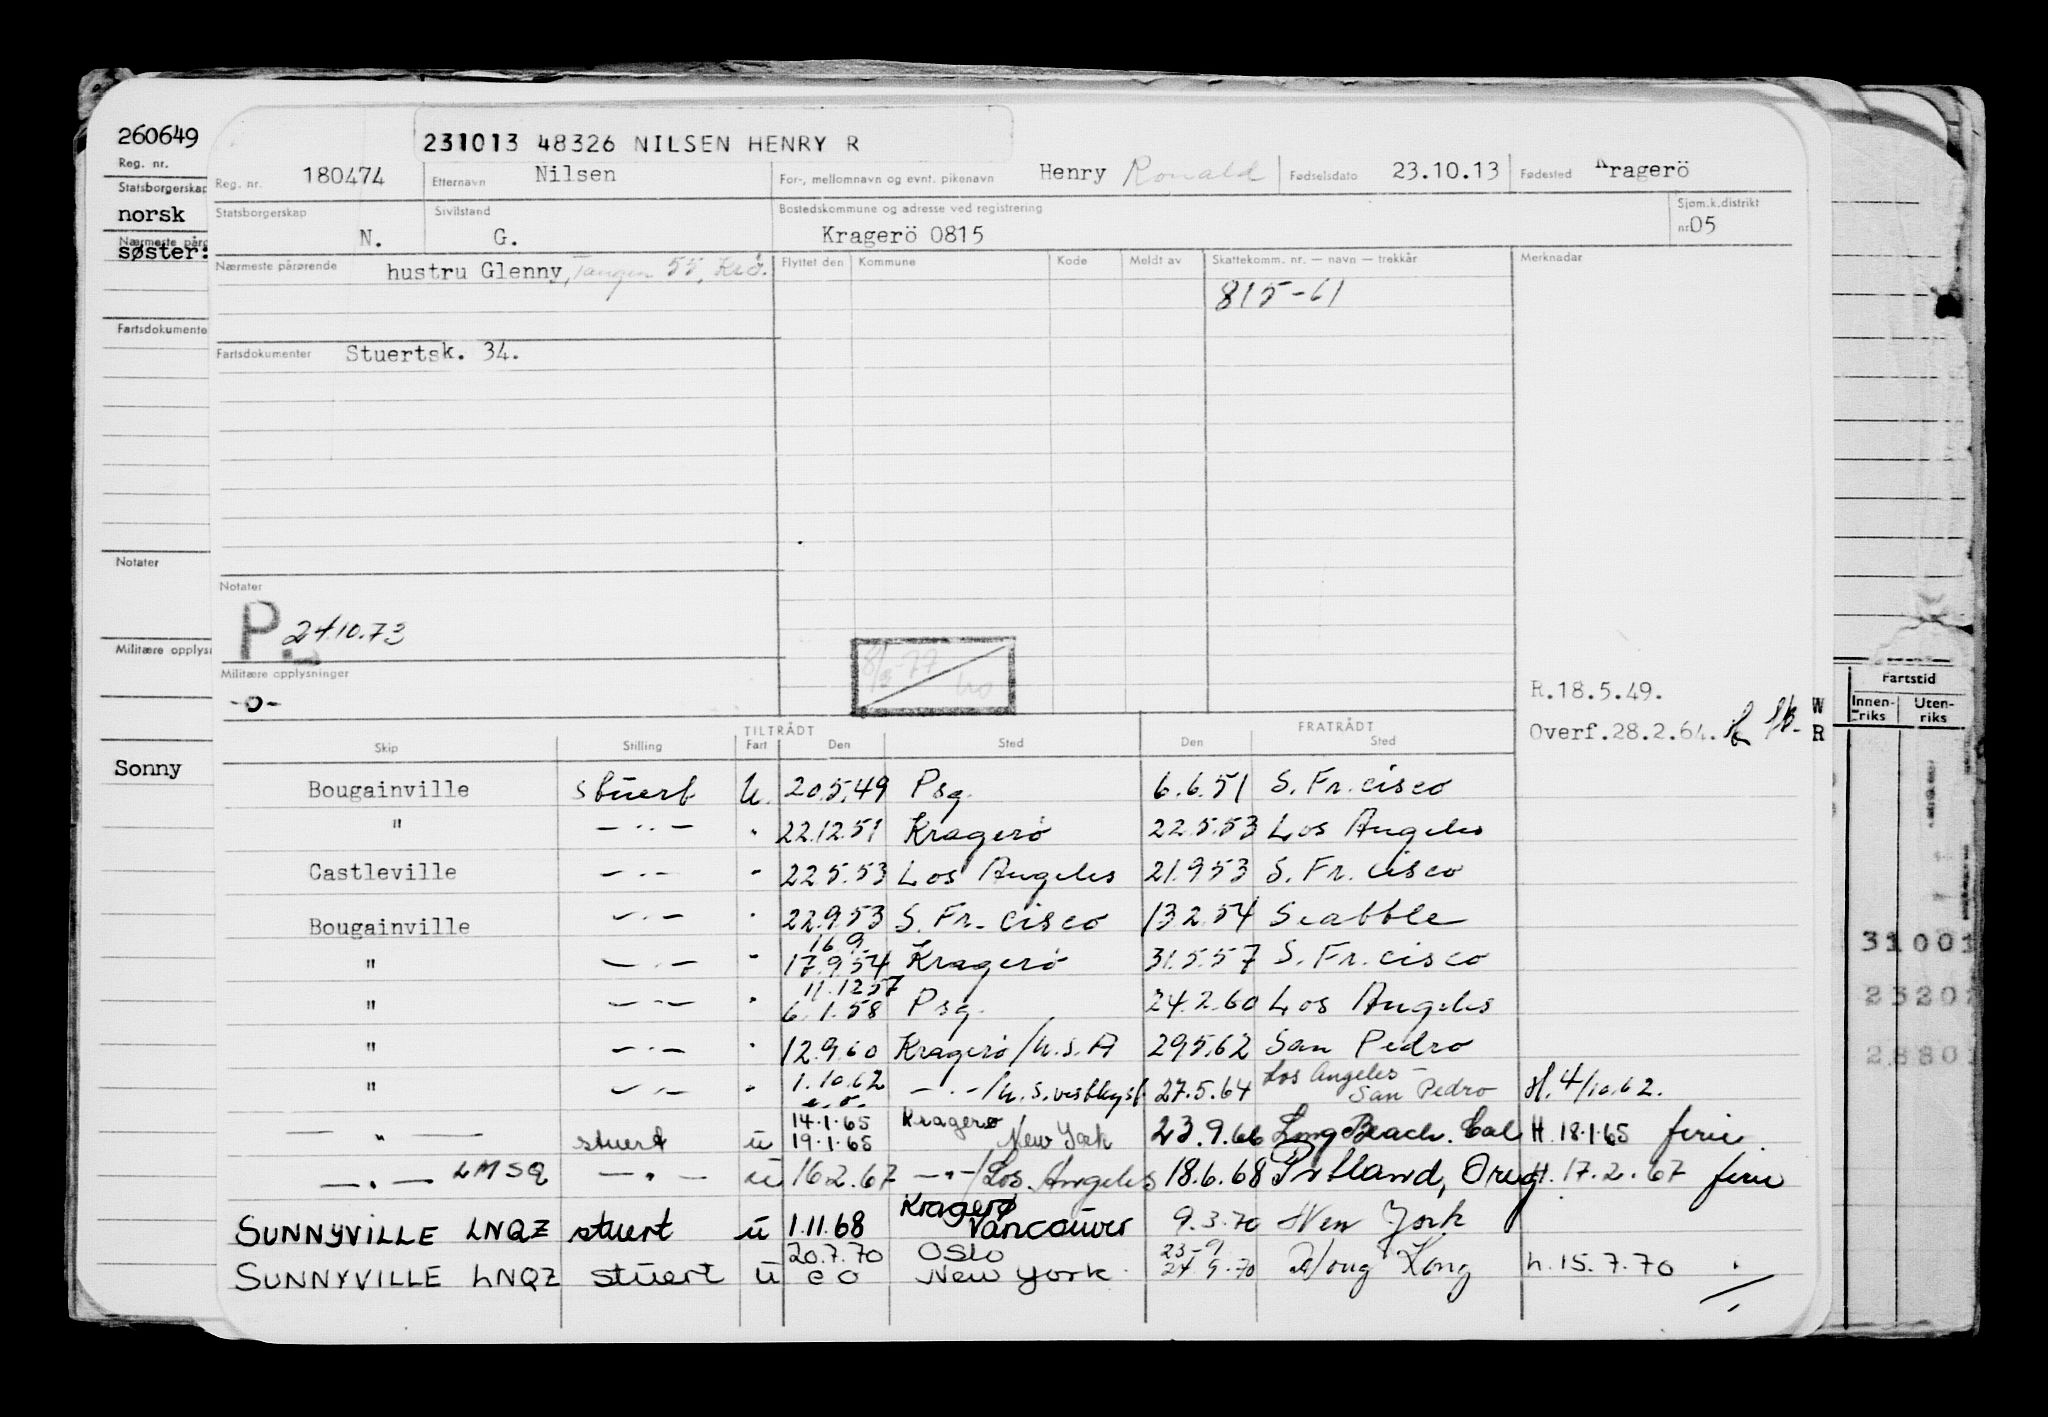 260649
Reg. nr.
Statsborgerskap
norsk
Nærmeste pårø
søster:
Fartsdokumente
Notater
Militære opplys
Sonny
231013 48326 NILSEN HENRY R
Reg. nr. 180474 Etternavn Nilsen For-, mellomnavn og evnt. pikenavn Henry Ronald Fødselsdato 23.10.13 Fødested Kragerö
Statsborgerskap N. Sivilstand G. Bostedskommune og adresse ved registrering Kragerö 0815 Sjøm.k.distrikt nr. 05
Nærmeste pårørende hustru Glenny, Tangen 55, Krö. Flyttet den Kommune Kode Meldt av Skattekomm. nr. — navn — trekkår Merknadar
815-61
Fartsdokumenter Stuertsk. 34.
Notater
P. 24.10.73
Militære opplysninger
-o-
R.18.5.49.
Overf.28.2.64.
W
R
Fartstid
Innen-riks Uten-riks
TILTRÅDT FRATRÅDT
Skip Stilling Fart Den Sted Den Sted
Bougainville stuert U. 20.5.49 Psg. 6.6.51 S. Fr.cisco
" — " — " 22.12.51 Kragerö 22.5.53 Los Angeles
Castleville — " — " 22.5.53 Los Angeles 21.9.53 S. Fr. cisco
Bougainville — " — " 22.9.53 S. Fr. cisco 13.2.54 Seattle
16.9.
" — " — " 17.9.54 Kragerö 31.5.57 S. Fr. cisco
11.12.57
" — " — " 6.1.58 Psg. 24.2.60 Los Angeles
" — " — 12.9.60 Kragerö/U.S.A 29.5.62 San Pedro
" — " — " 1.10.62 — " —/U.S. vestkyst 27.5.64 Los Angeles – San Pedro H. 4/10.62.
e.o.
14.1.65 Kragerø
— " — stuert u 19.1.65 / New York 23.9.66 Long Beach. Cal H. 18.1.65 ferie
— " — LMSQ — " — u 16.2.67 — " —/Los. Angeles 18.6.68 Portland, Oreg H. 17.2.67 ferie
Kragerø
SUNNYVILLE LNQZ stuert u 1.11.68 Vancouver 9.3.70 New York
20.7.70 Oslo 23-9
SUNNYVILLE LNQZ stuert u e o New York. 24.9.70 Hong Kong h. 15.7.70
31001